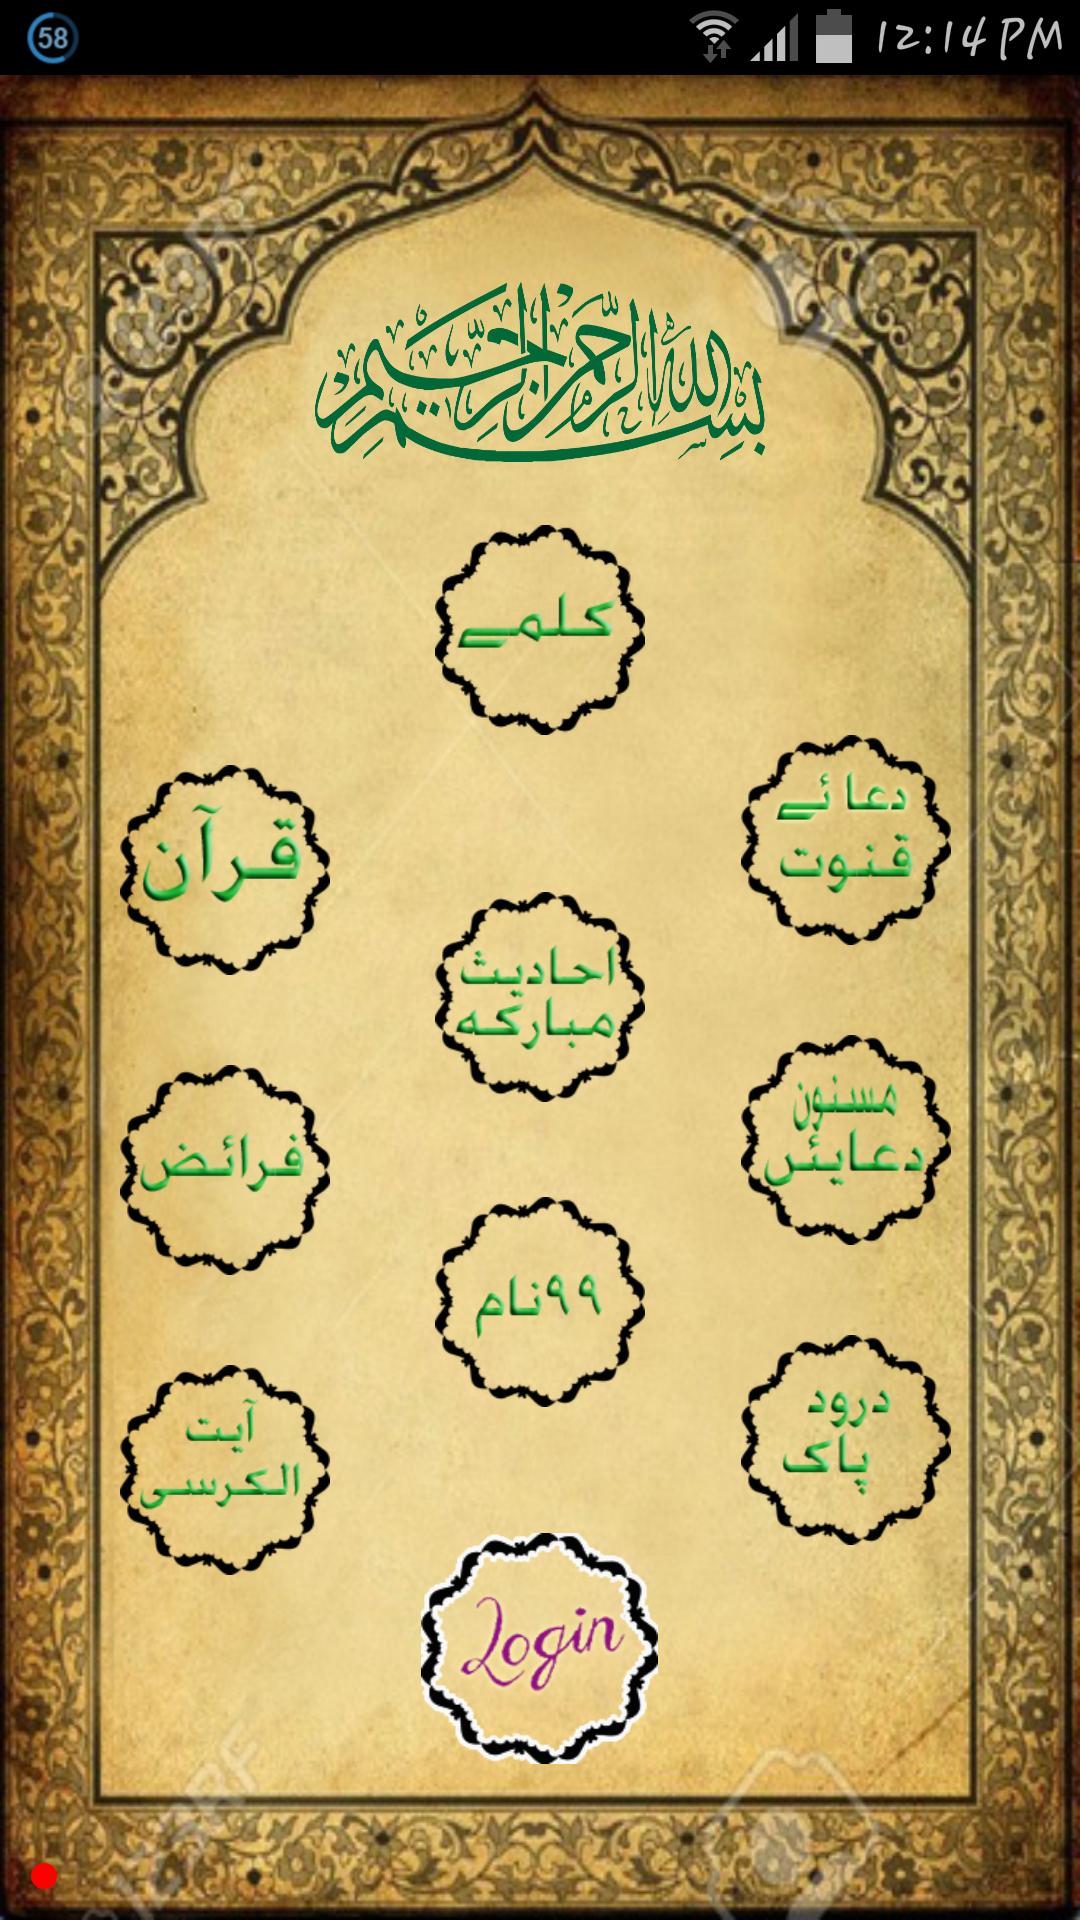 58
12:14 PM
بسم الله الرحمن الرحيم
کلمے
دعائے
قنوت
قرآن
احادیث
مبارکہ
مسنون
دعایئں
فرائض
۹۹نام
درود
پاک
آیت
الکرسی
Login
123RF